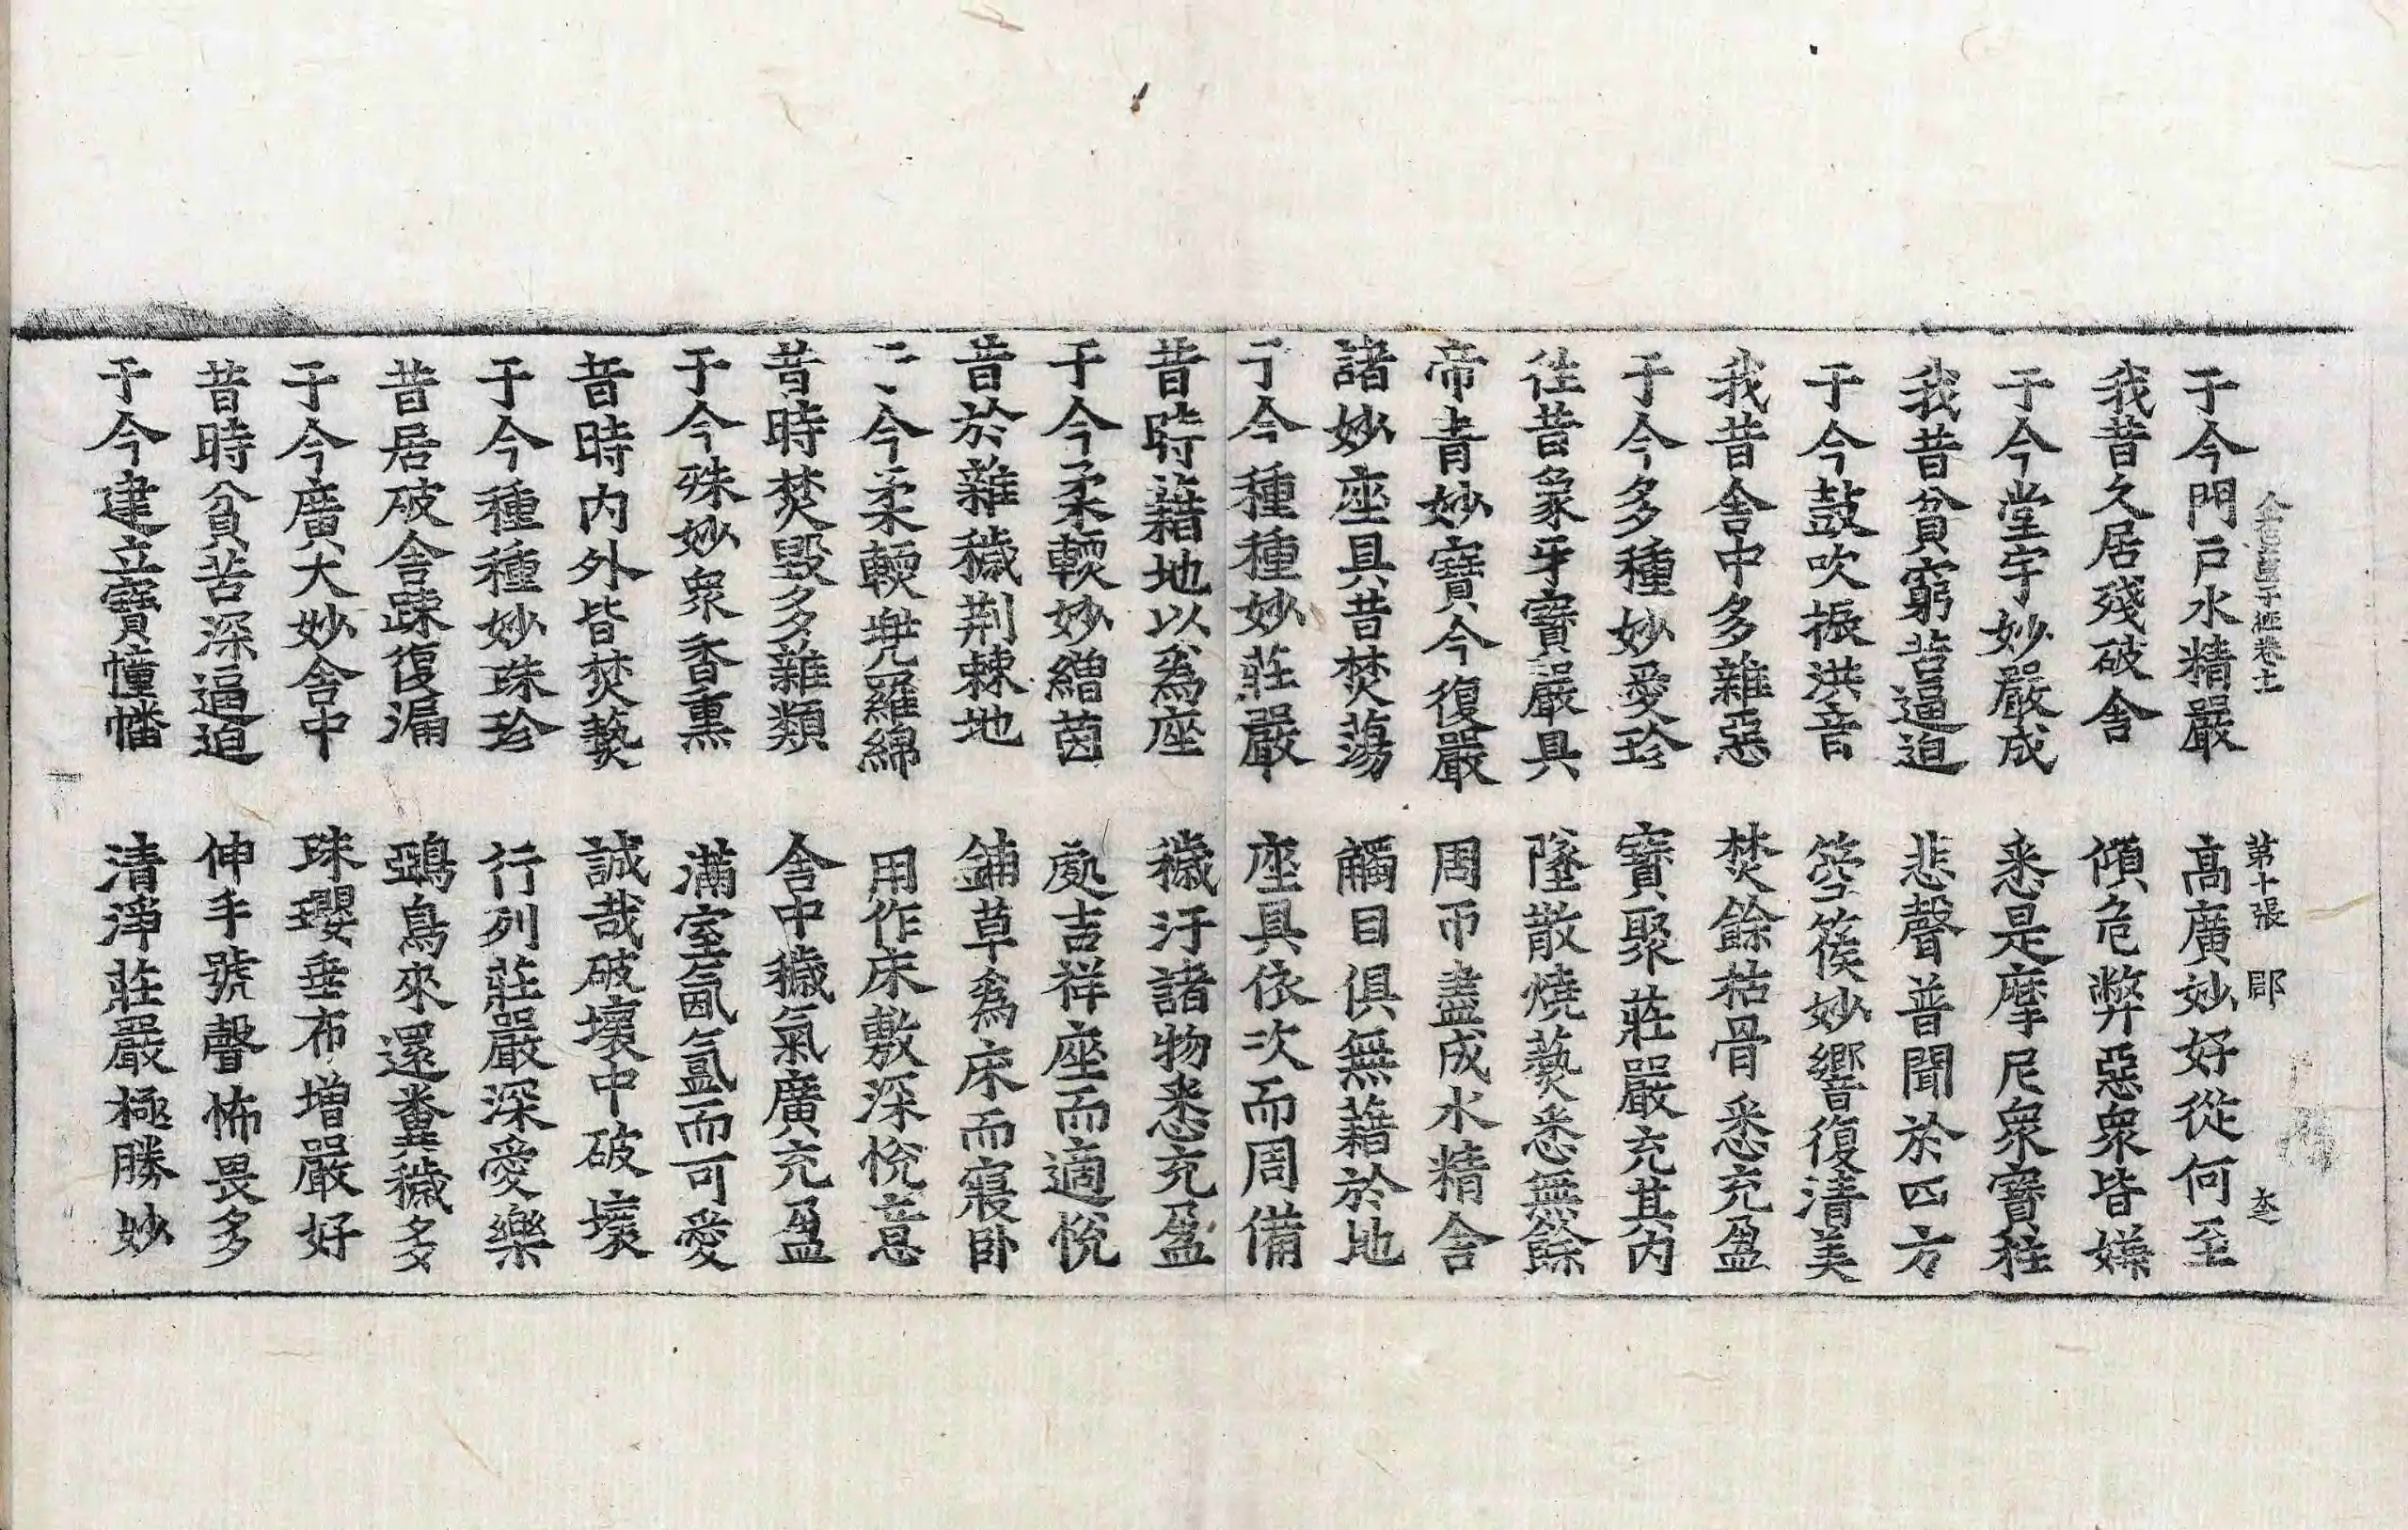 金色童子經卷十一 第十張 郡
于今門戶水精嚴 高廣妙好從何至
我昔久居殘破舍 傾危弊惡衆皆嫌
于今堂宇妙嚴成 悉是摩尼衆寶柱
我昔貧窮苦逼迫 悲聲普聞於四方
于今鼓吹振洪音 箜篌妙響復清美
我昔舍中多雜惡 焚餘枯骨悉充盈
于今多種妙愛珍 寶聚莊嚴充其內
往昔象牙寶嚴具 墜散燒爇悉無餘
帝青妙寶今復嚴 周帀盡成水精舍
諸妙座具昔焚蕩 觸目俱無藉於地
于今種種妙莊嚴 座具依次而周備
昔時藉地以爲座 穢汙諸物悉充盈
于今柔輭妙繒茵 處吉祥座而適悅
昔於雜穢荆棘地 鋪草爲床而寢臥
今柔輭兠羅綿 用作床敷深悅意
昔時焚毀多雜類 舍中穢氣廣充盈
于今殊妙衆香熏 滿室氤氳而可愛
昔時内外皆焚爇 誠哉破壞中破壞
于今種種妙珠珍 行列莊嚴深愛樂
昔居破舍踈復漏 鵶鳥來還糞穢多
于今廣大妙舍中 珠瓔垂布增嚴好
昔時貧苦深逼迫 伸手號聲怖畏多
于今建立寶幢幡 清淨莊嚴極勝妙